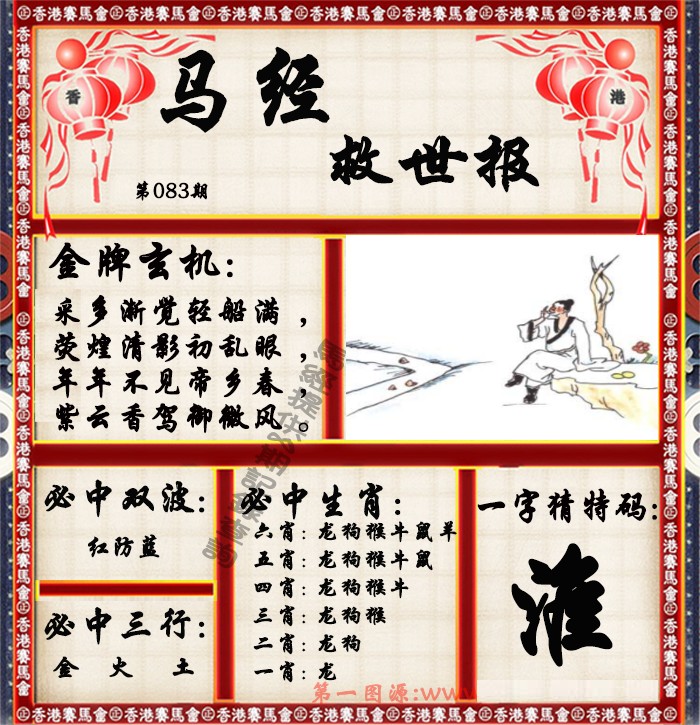 香港賽馬會㊣香港賽馬會㊣香港賽馬會㊣香港賽馬會
香 港
马经
救世报
第083期
金牌玄机：
采乡渐觉轻船满，
荧煌清影初乱眼，
年年不见帝乡春，
紫云香驾御微风。
必中双波：
红防蓝
必中三行：
金 火 土
必中生肖：
六肖：龙狗猴牛鼠羊
五肖：龙狗猴牛鼠
四肖：龙狗猴牛
三肖：龙狗猴
二肖：龙狗
一肖：龙
一字猜特码：
第一图源:www.